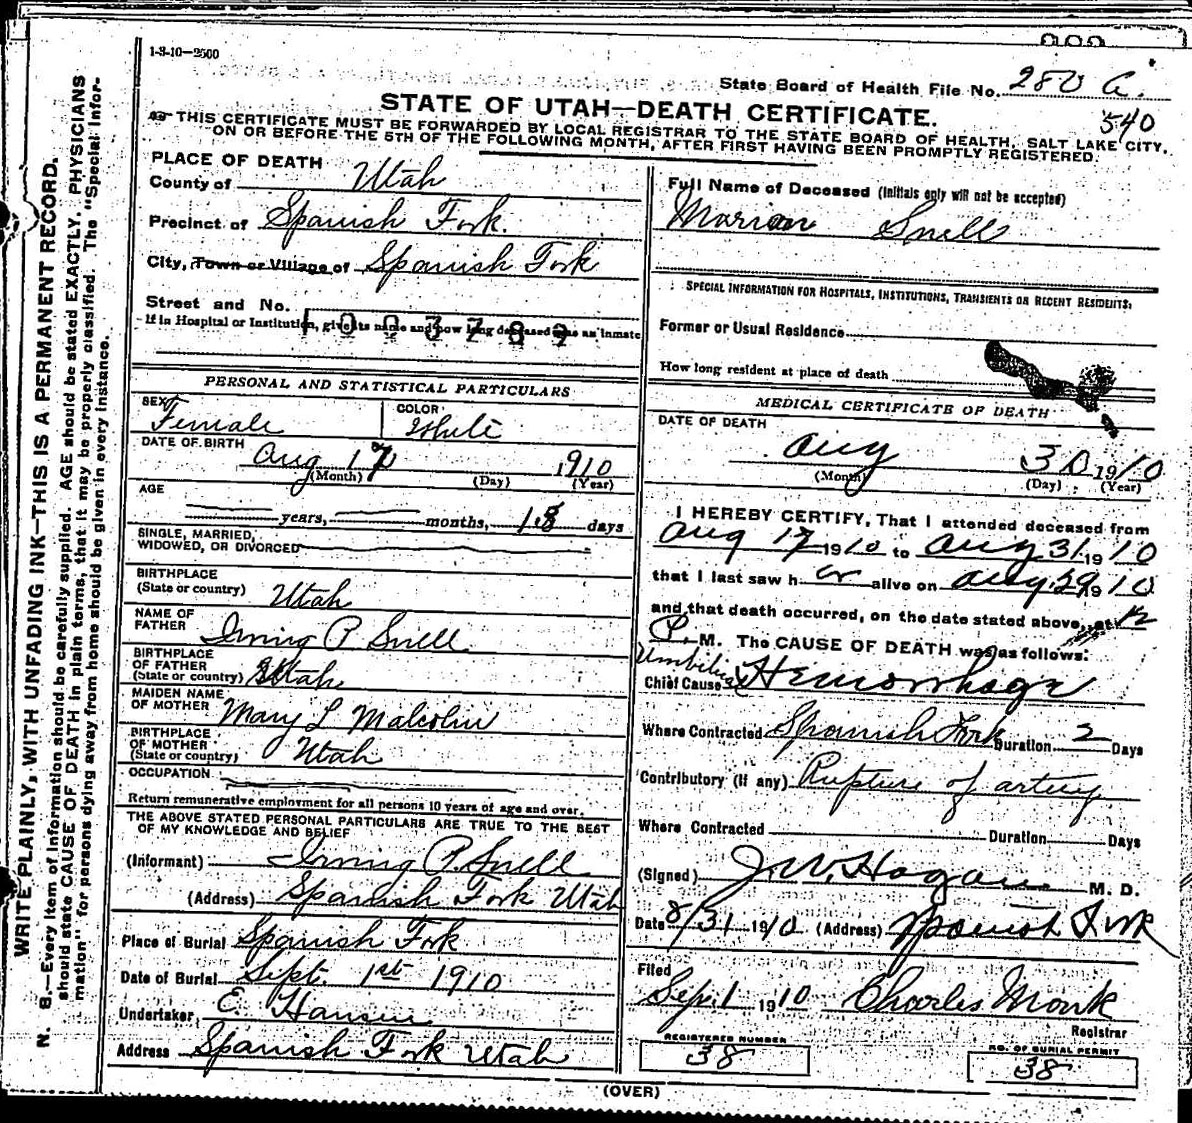 1-3-10—2500
State Board of Health File No. 280 A.
540
STATE OF UTAH—DEATH CERTIFICATE.
THIS CERTIFICATE MUST BE FORWARDED BY LOCAL REGISTRAR TO THE STATE BOARD OF HEALTH, SALT LAKE CITY,
ON OR BEFORE THE 5TH OF THE FOLLOWING MONTH, AFTER FIRST HAVING BEEN PROMPTLY REGISTERED.
PLACE OF DEATH
County of Utah
Precinct of Spanish Fork.
City, Town or Village of Spanish Fork
Street and No.
If in Hospital or Institution, give its name and how long deceased was an inmate
1003789
PERSONAL AND STATISTICAL PARTICULARS
SEX Female
COLOR White
DATE OF BIRTH Aug 17 1910
(Month) (Day) (Year)
AGE
years, months, 18 days
SINGLE, MARRIED,
WIDOWED, OR DIVORCED
BIRTHPLACE
(State or country) Utah
NAME OF
FATHER Irving P. Snell
BIRTHPLACE
OF FATHER
(State or country) Utah
MAIDEN NAME
OF MOTHER Mary L Malcolm
BIRTHPLACE
OF MOTHER
(State or country) Utah
OCCUPATION
Return remunerative employment for all persons 10 years of age and over.
THE ABOVE STATED PERSONAL PARTICULARS ARE TRUE TO THE BEST
OF MY KNOWLEDGE AND BELIEF
(Informant) Irving P. Snell
(Address) Spanish Fork Utah
Place of Burial Spanish Fork
Date of Burial Sept. 1st 1910
Undertaker E. Hansen
Address Spanish Fork Utah
Full Name of Deceased (Initials only will not be accepted)
Marian Snell
SPECIAL INFORMATION FOR HOSPITALS, INSTITUTIONS, TRANSIENTS OR RECENT RESIDENTS:
Former or Usual Residence
How long resident at place of death
MEDICAL CERTIFICATE OF DEATH
DATE OF DEATH
Aug 30 1910
(Month) (Day) (Year)
I HEREBY CERTIFY, That I attended deceased from
Aug 17 1910 to Aug 31 1910
that I last saw her alive on Aug 29 1910
and that death occurred, on the date stated above, at 12
P. M. The CAUSE OF DEATH was as follows:
Chief Cause Umbilical Hemorrhage
Where Contracted Spanish Fork Duration 2 Days
Contributory (if any) Rupture of artery
Where Contracted Duration Days
(Signed) J. W. Hagan M. D.
Date 8/31 1910 (Address) Spanish Fork
Filed
Sep. 1 1910 Charles Monk
Registrar
REGISTERED NUMBER
38
NO. OF BURIAL PERMIT
38
(OVER)
WRITE PLAINLY, WITH UNFADING INK—THIS IS A PERMANENT RECORD.
N. B.—Every item of information should be carefully supplied. AGE should be stated EXACTLY. PHYSICIANS
should state CAUSE OF DEATH in plain terms, that it may be properly classified. The "Special Infor-
mation" for persons dying away from home should be given in every instance.